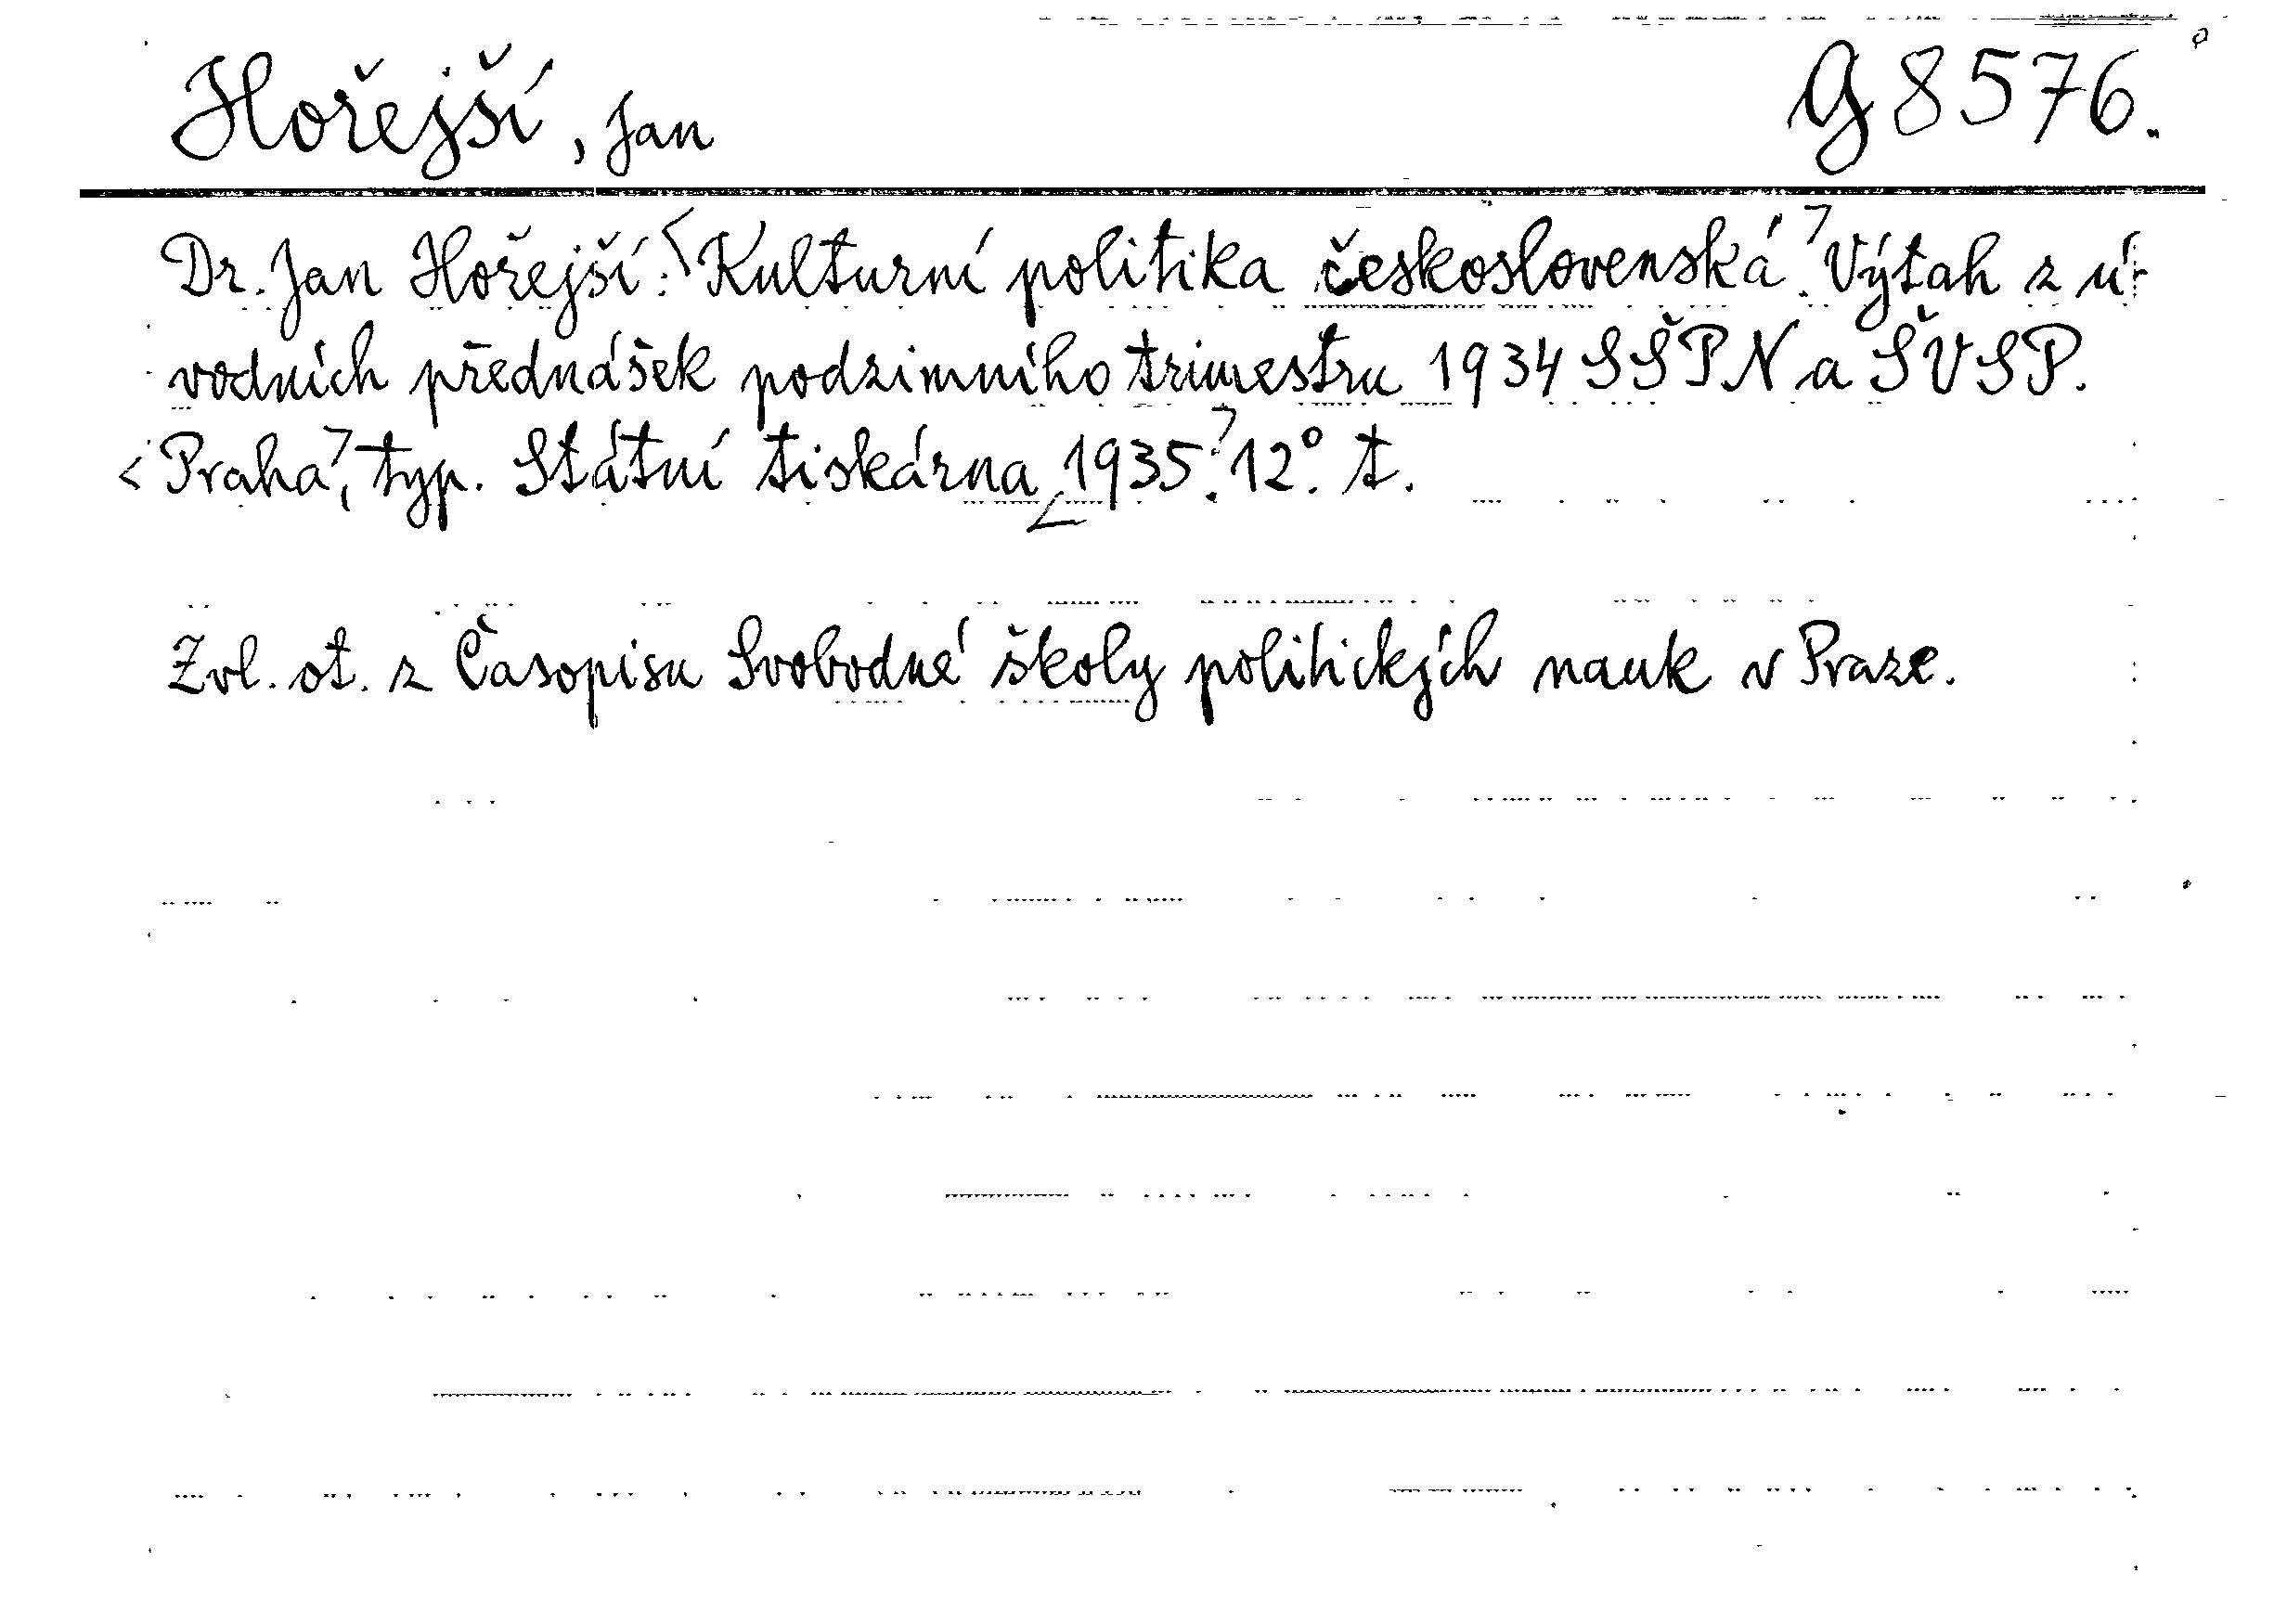 Hořejší, Jan G 8576.
Dr. Jan Hořejší: <Kulturní politika československá.> Výtah z ú-
vodních přednášek podzimního trimestru 1934 SŠPN a ŠVSP.
<Praha>, typ. Státní tiskárna <1935.> 12°. t.
Zvl. ot. z Časopisu Svobodné školy politických nauk v Praze.